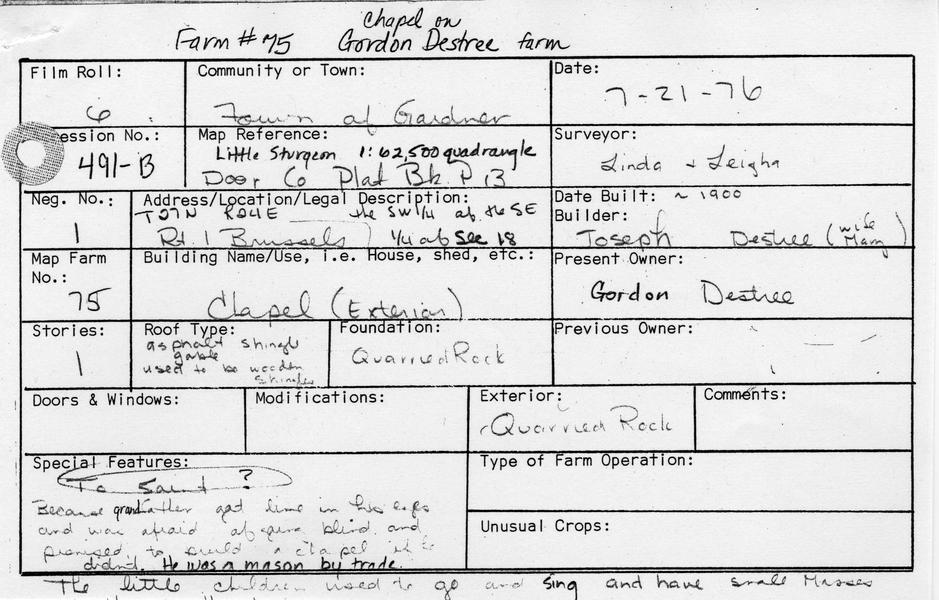 Chapel on
Farm #75 Gordon Destree farm
Film Roll:
6
Community or Town:
Town of Gardner
Date:
7-21-76
ession No.:
491-B
Map Reference:
Little Sturgeon 1:62,500 quadrangle
Door Co Plat Bk P 13
Surveyor:
Linda + Leigha
Neg. No.:
1
Address/Location/Legal Description:
T27N R24E the SW1/4 of the SE
Rt. 1 Brussels 1/4 of Sec 18
Date Built: ~ 1900
Builder:
Joseph Destree (wife Mary)
Map Farm
No.:
75
Building Name/Use, i.e. House, shed, etc.:
Chapel (Exterior)
Present Owner:
Gordon Destree
Stories:
1
Roof Type:
asphalt shingle
gable
used to be wooden
shingles
Foundation:
Quarried Rock
Previous Owner:
Doors & Windows:
Modifications:
Exterior:
Quarried Rock
Comments:
Special Features:
To Saint ?
Because grandfather got lime in his eyes
and was afraid of going blind and
promised to build a chapel if he
didn't. He was a mason by trade.
Type of Farm Operation:
Unusual Crops:
The little children used to go and sing and have small Masses